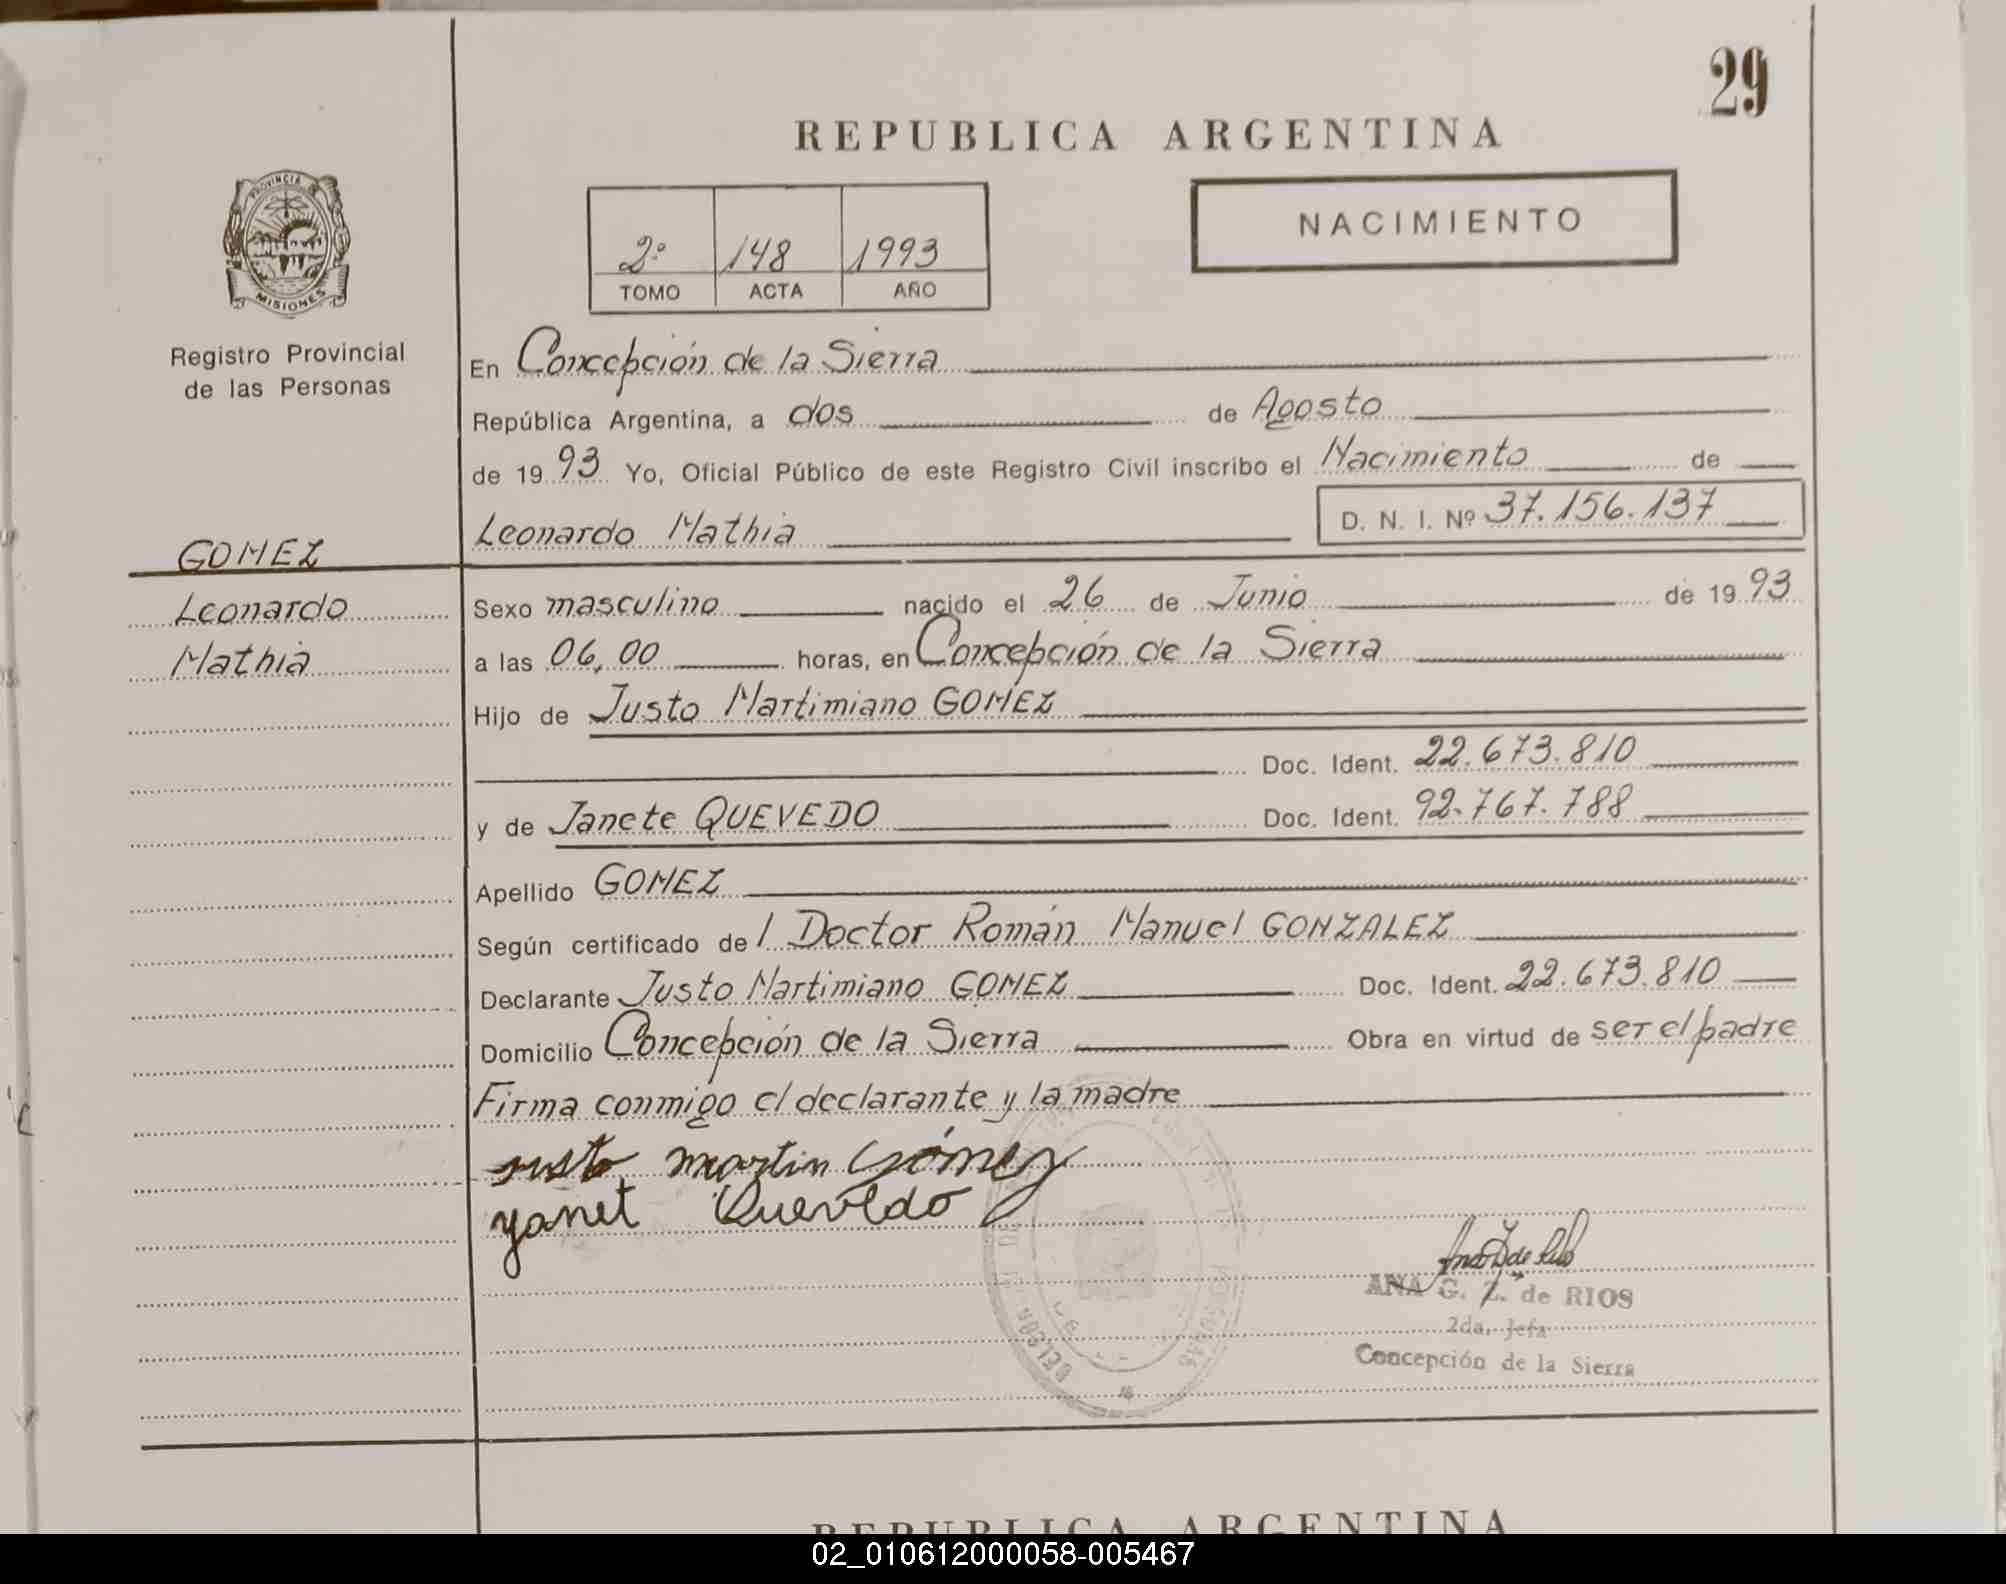 29
REPUBLICA ARGENTINA
PROVINCIA DE
MISIONES
2º 148 1993
TOMO ACTA AÑO
NACIMIENTO
Registro Provincial
de las Personas
En Concepción de la Sierra
República Argentina, a dos de Agosto
de 1993 Yo, Oficial Público de este Registro Civil inscribo el Nacimiento de
Leonardo Mathia D. N. I. Nº 37.156.137
GOMEZ
Leonardo
Mathia
Sexo masculino nacido el 26 de Junio de 1993
a las 06,00 horas, en Concepción de la Sierra
Hijo de Justo Martimiano GOMEZ
Doc. Ident. 22.673.810
y de Janete QUEVEDO Doc. Ident. 92.767.788
Apellido GOMEZ
Según certificado del Doctor Román Manuel GONZALEZ
Declarante Justo Martimiano GOMEZ Doc. Ident. 22.673.810
Domicilio Concepción de la Sierra Obra en virtud de ser el padre
Firma conmigo el declarante y la madre
justo martin Gómez
yanet Quevedo
ANA G. Z. de RIOS
2da. Jefa
Concepción de la Sierra
REPUBLICA ARGENTINA
02_010612000058-005467